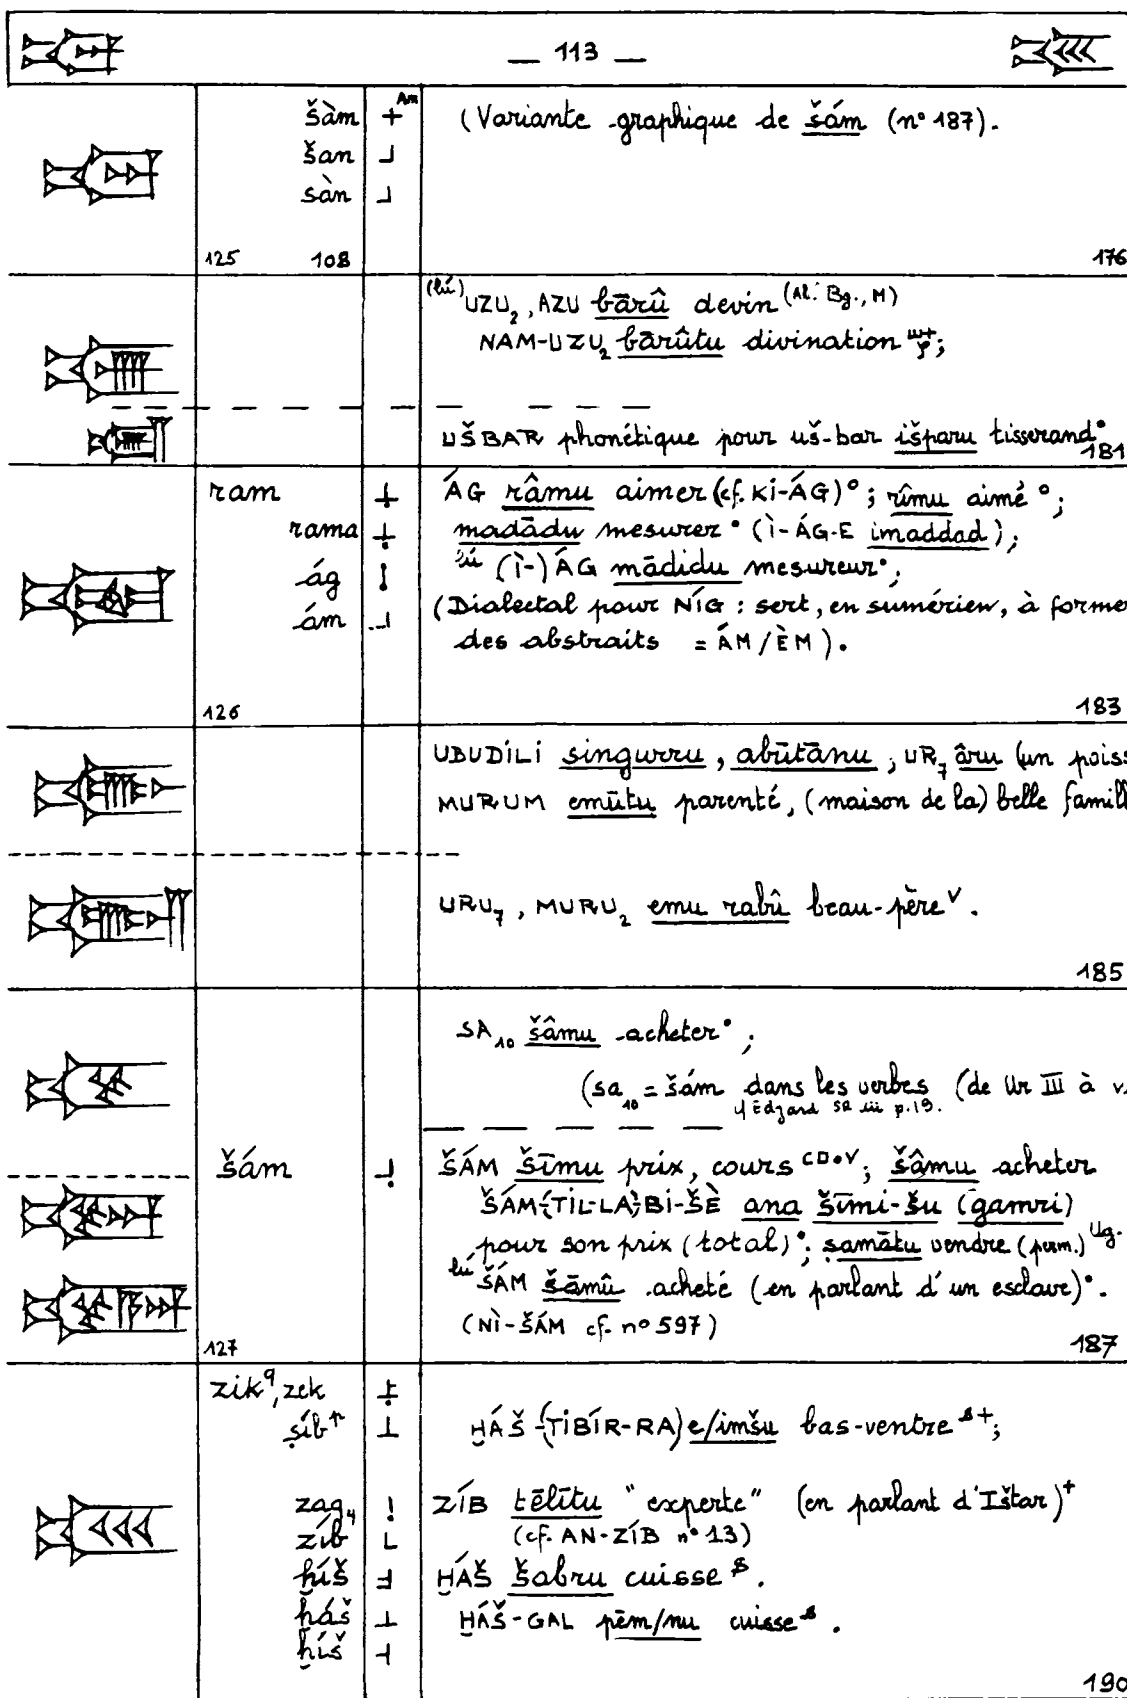 — 113 —
šàm + Am (Variante graphique de šám (n° 187).
šan
sàn
125 108 176
(lú) UZU₂, AZU bārû devin (Al. Bg., M)
NAM-UZU₂ bārûtu divination ;
UŠBAR phonétique pour uš-bar išparu tisserand°
181
ram ÁG râmu aimer (cf. KI-ÁG)°; rîmu aimé°;
rama madādu mesurer° (Ì-ÁG-E imaddad);
ág lú (Ì-)ÁG mādidu mesureur°;
ám (Dialectal pour NÍG : sert, en sumérien, à former
des abstraits = ÁM/ÈM).
126 183
UBUDILI singurru, abūtānu, UR₇ âru (un poiss
MURUM emūtu parenté, (maison de la) belle famill
URU₇, MURU₂ emu rabû beau-père V.
185
SA₁₀ šâmu acheter°;
(sa₁₀ = šám dans les verbes (de Ur III à
cf Edzard SR III p.19.
šám ŠÁM šīmu prix, cours CD°V; šâmu acheter
ŠÁM-(TIL-LA)-BI-ŠÈ ana šīmi-šu (gamri)
pour son prix (total)°; ṣamātu vendre (perm.) Ug.
lú ŠÁM šāmû acheté (en parlant d'un esclave)°.
(NÌ-ŠÁM cf. n° 597)
127 187
zik⁹, zek
ṣíb ḪÁŠ-(TIBÍR-RA) e/imšu bas-ventre s+;
zag₄ ZÍB tēlītu "experte" (en parlant d'Ištar)+
zíb (cf. AN-ZÍB n° 13)
ḫíš ḪÁŠ šabru cuisse s.
ḫáš ḪÁŠ-GAL pēm/nu cuisse s.
ḫíš
190